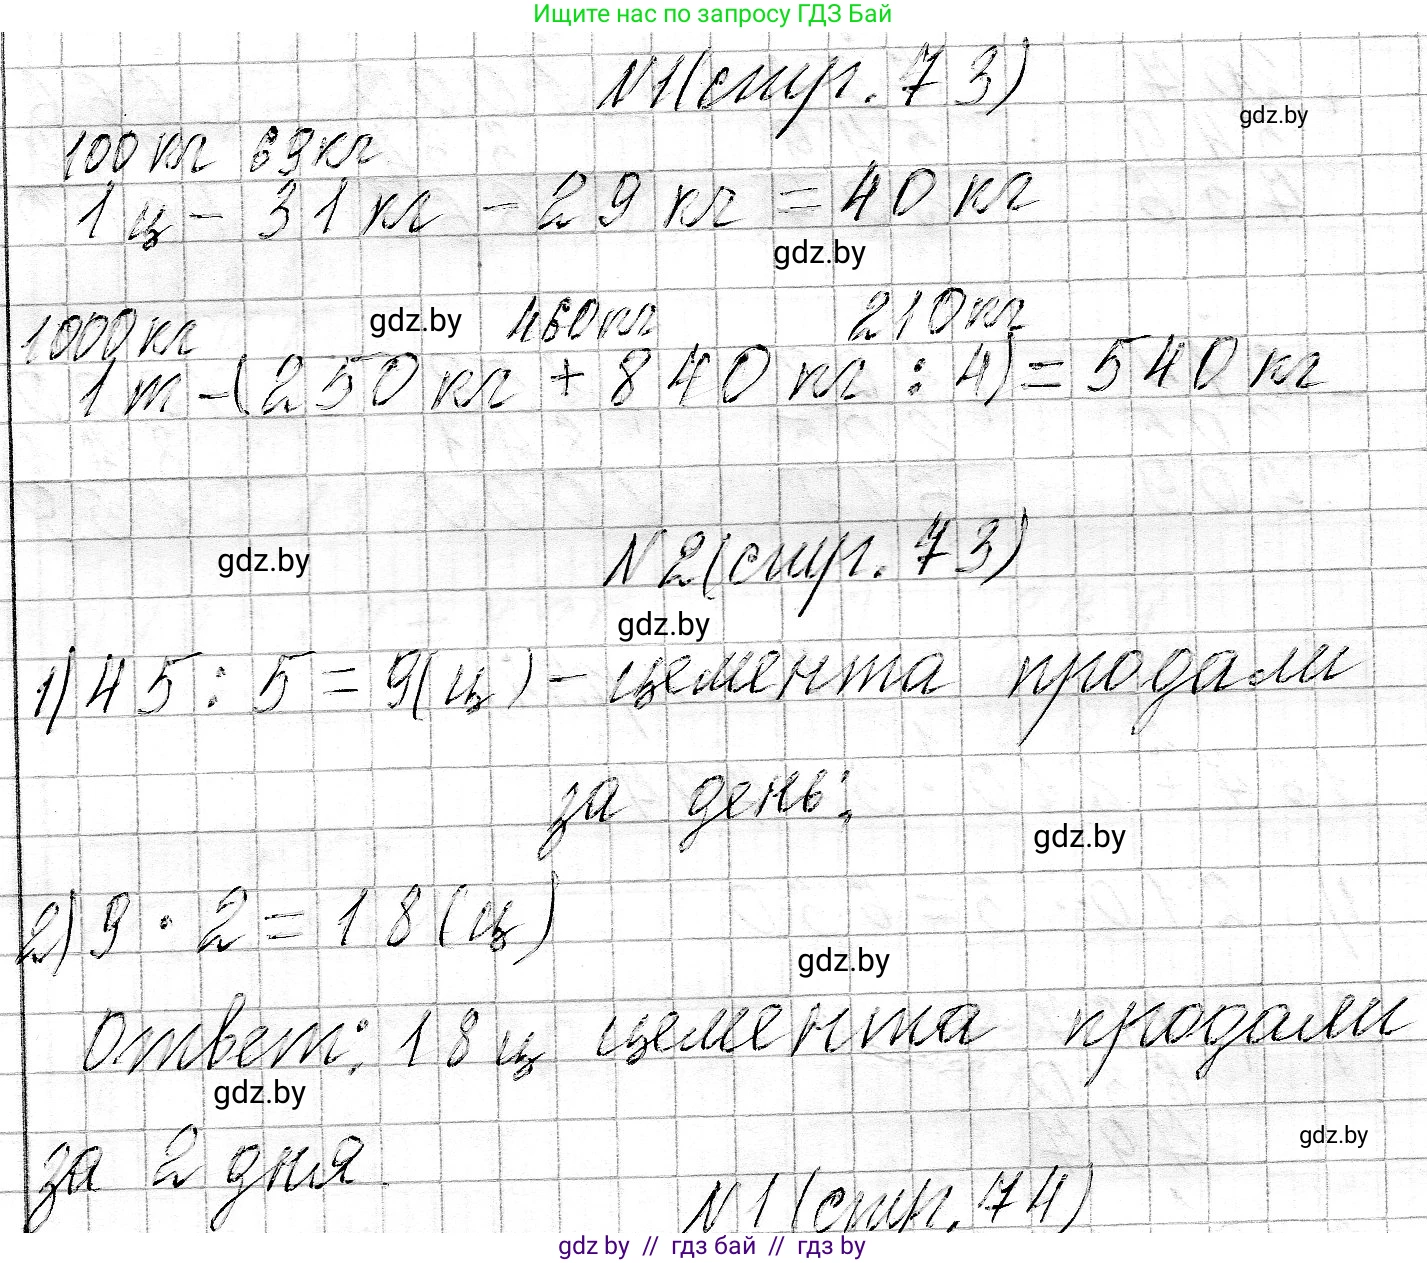 Ищите нас по запросу ГДЗ Бай
N1(стр. 73)
gdz.by
100 кг 69 кг
1 ц - 31 кг - 29 кг = 40 кг
gdz.by
1000 кг gdz.by 460 кг 210 кг
1 т - (250 кг + 840 кг : 4) = 540 кг
N2(стр. 73)
gdz.by
gdz.by
1) 45 : 5 = 9(ц) - цемента продали
за день;
gdz.by
2) 9 · 2 = 18(ц)
gdz.by
Ответ: 18 ц цемента продали
gdz.by
gdz.by
за 2 дня.
N1(стр. 74)
gdz by // гдз бай // гдз by